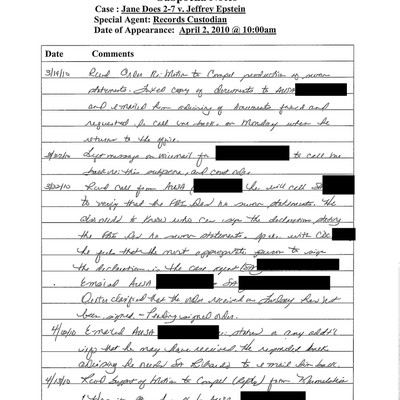 Case : Jane Does 2-7 v. Jeffrey Epstein
Special Agent: Records Custodian
Date of Appearance: April 2, 2010 @ 10:00am
Date Comments
3/19/10 Recd Order Re: Motion to Compel production of sworn
statements. Faxed copy of documents to AUSA
and emailed him advising of documents faxed and
requested he call me back on Monday when he
returns to the office.
Left message on voicemail for to call me
back re: this subpoena, and court rules.
3/22/10 Recd call from AUSA he will call SA
to verify that the FBI had no sworn statements. He
also needs to know who can sign the declaration stating
the FBI had no sworn statements. Spoke with CDC
he feels that the most appropriate person to sign
the declaration is the case agent (SA
Emailed AUSA SA
clarified that the orders received on have not
been signed - Pending signed orders.
Emailed AUSA re: status or any add'l
info that he may have received. He responded back
advising he needed SA to email him back.
4/13/10 Recd Support of Motion to Compel from